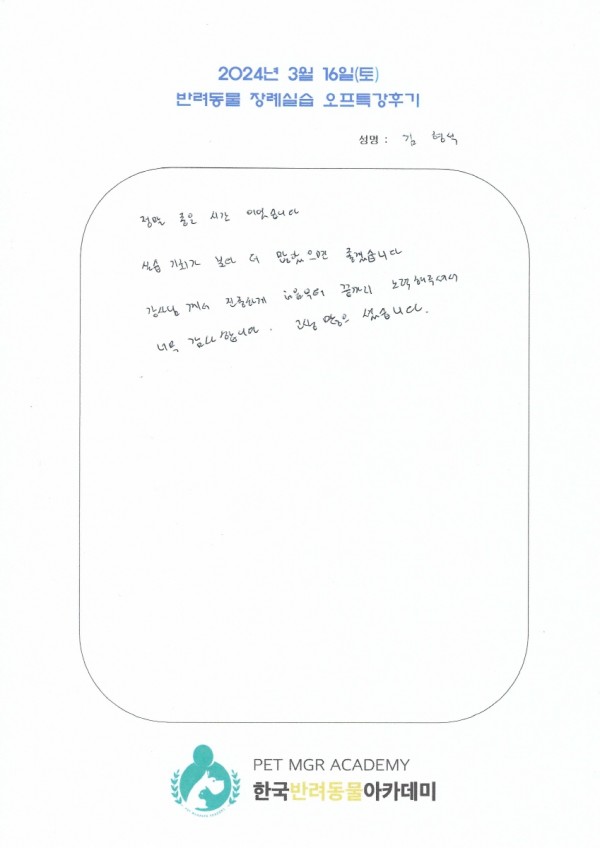 2024년 3월 16일(토)
반려동물 장례실습 오프특강후기
성명 : 김 형석
정말 좋은 시간 이었습니다
실습 기회가 보다 더 많았으면 좋겠습니다
강사님 께서 진중하게 처음부터 끝까지 노력해주셔서
너무 감사 합니다. 고생 많으 셨습니다.
PET MGR ACADEMY
한국반려동물아카데미